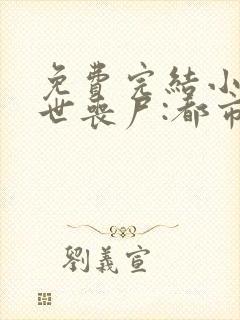 免費完結小
世喪尸:都市
劉義宣